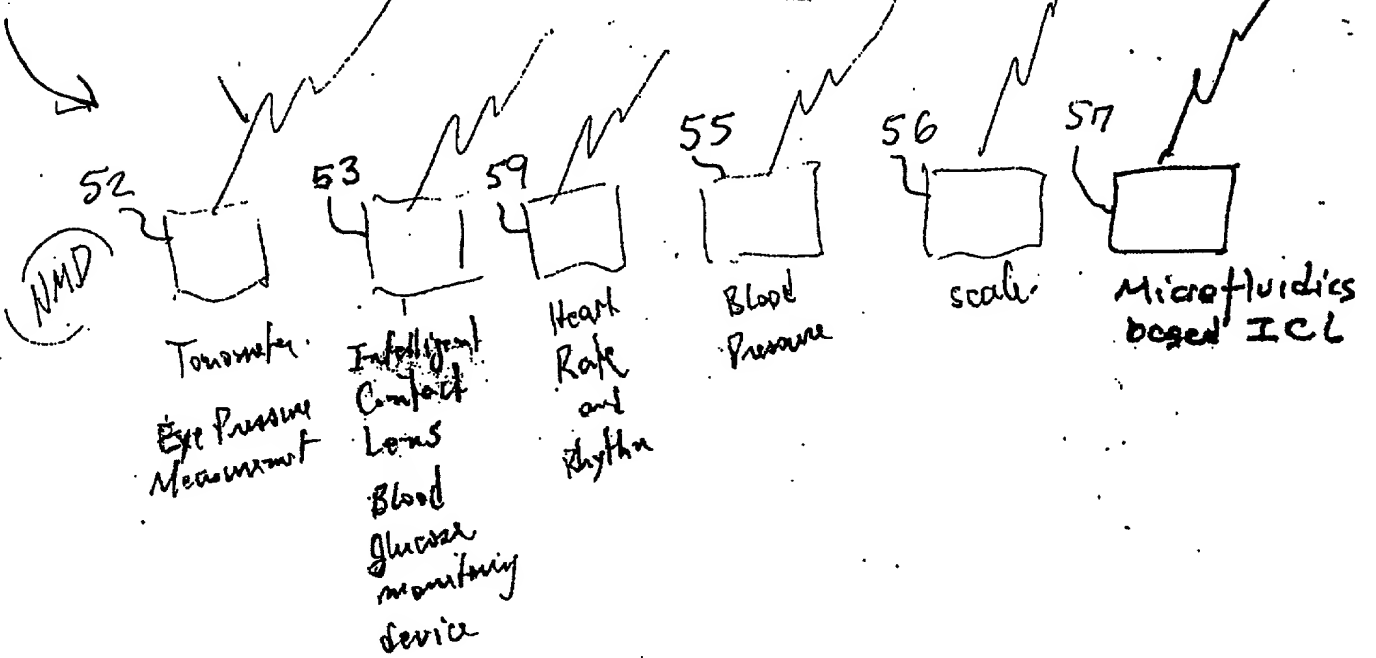 52
53
59
55
56
57
NMD
Tonometer.
Eye Pressure
Measurement
Intelligent
Contact
Lens
Blood
glucose
monitoring
device
Heart
Rate
and
Rhythm
Blood
Pressure
scale.
Microfluidics
based ICL